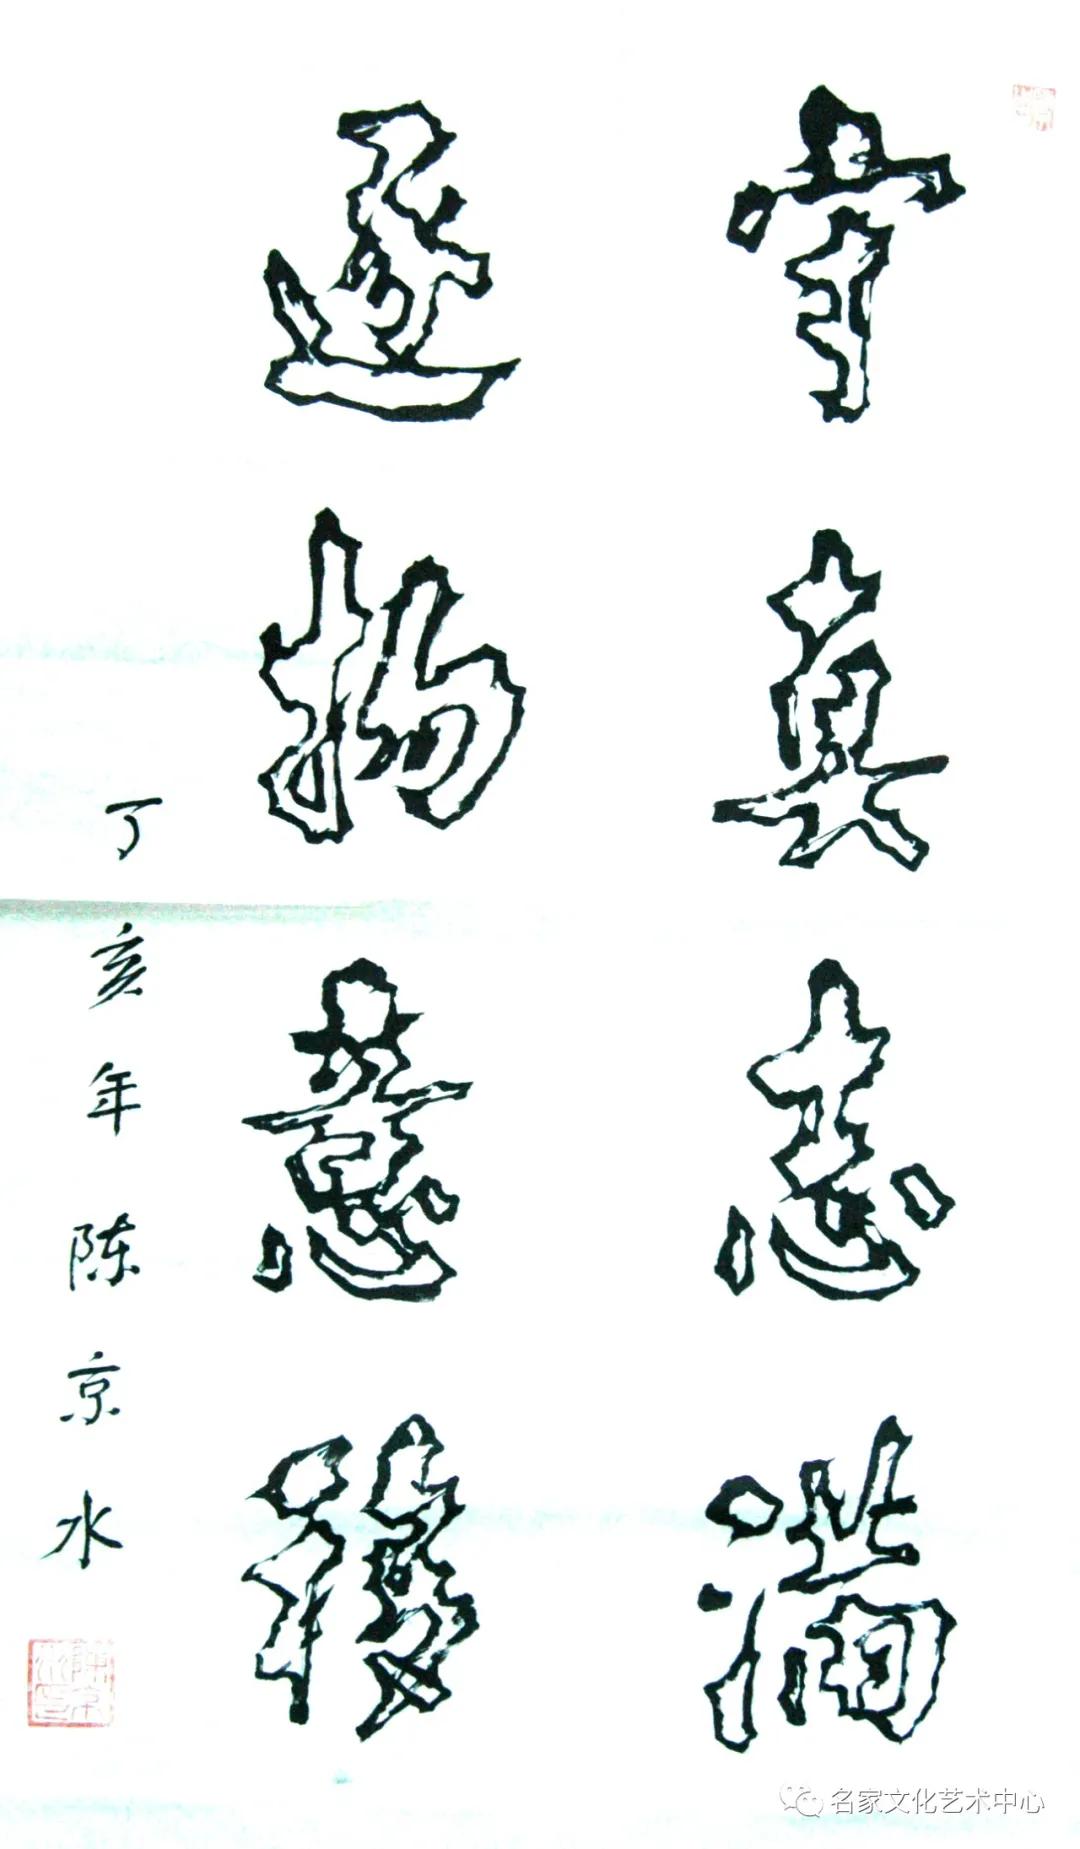 守真志满
逐物意移
丁亥年陈京水
名家文化艺术中心